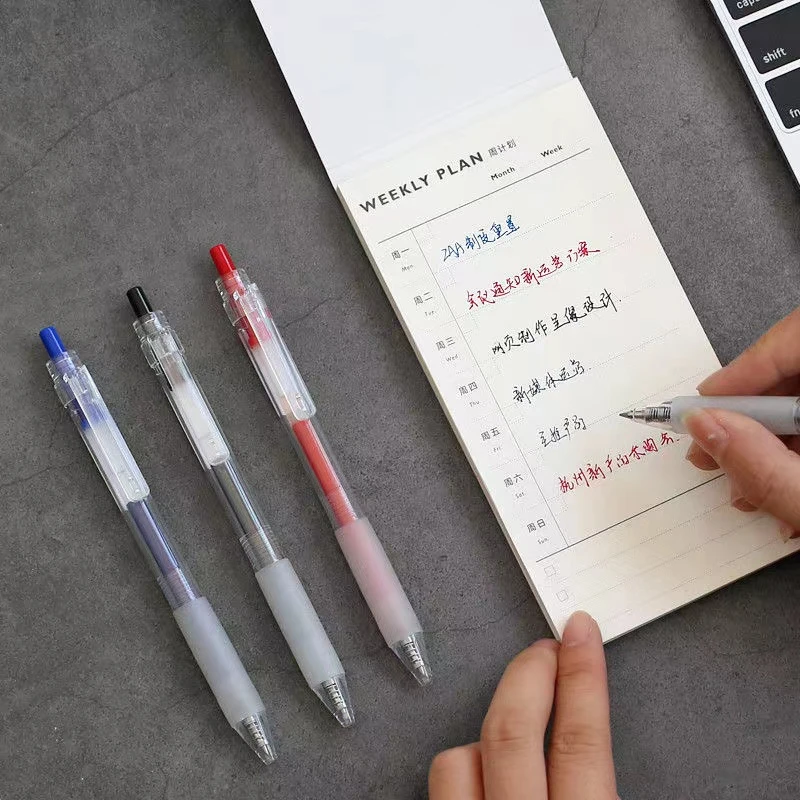 caps
shift
fn
WEEKLY PLAN 周计划
Month Week
周一 ZAA制度重置
Mon
周二 会议通知新运营方案
Tue
周三 网页制作呈假设计.
Wed
周四 新媒体运营.
Thu
周五 主推产品
Fri
周六 杭州新产品
Sat
周日
Sun